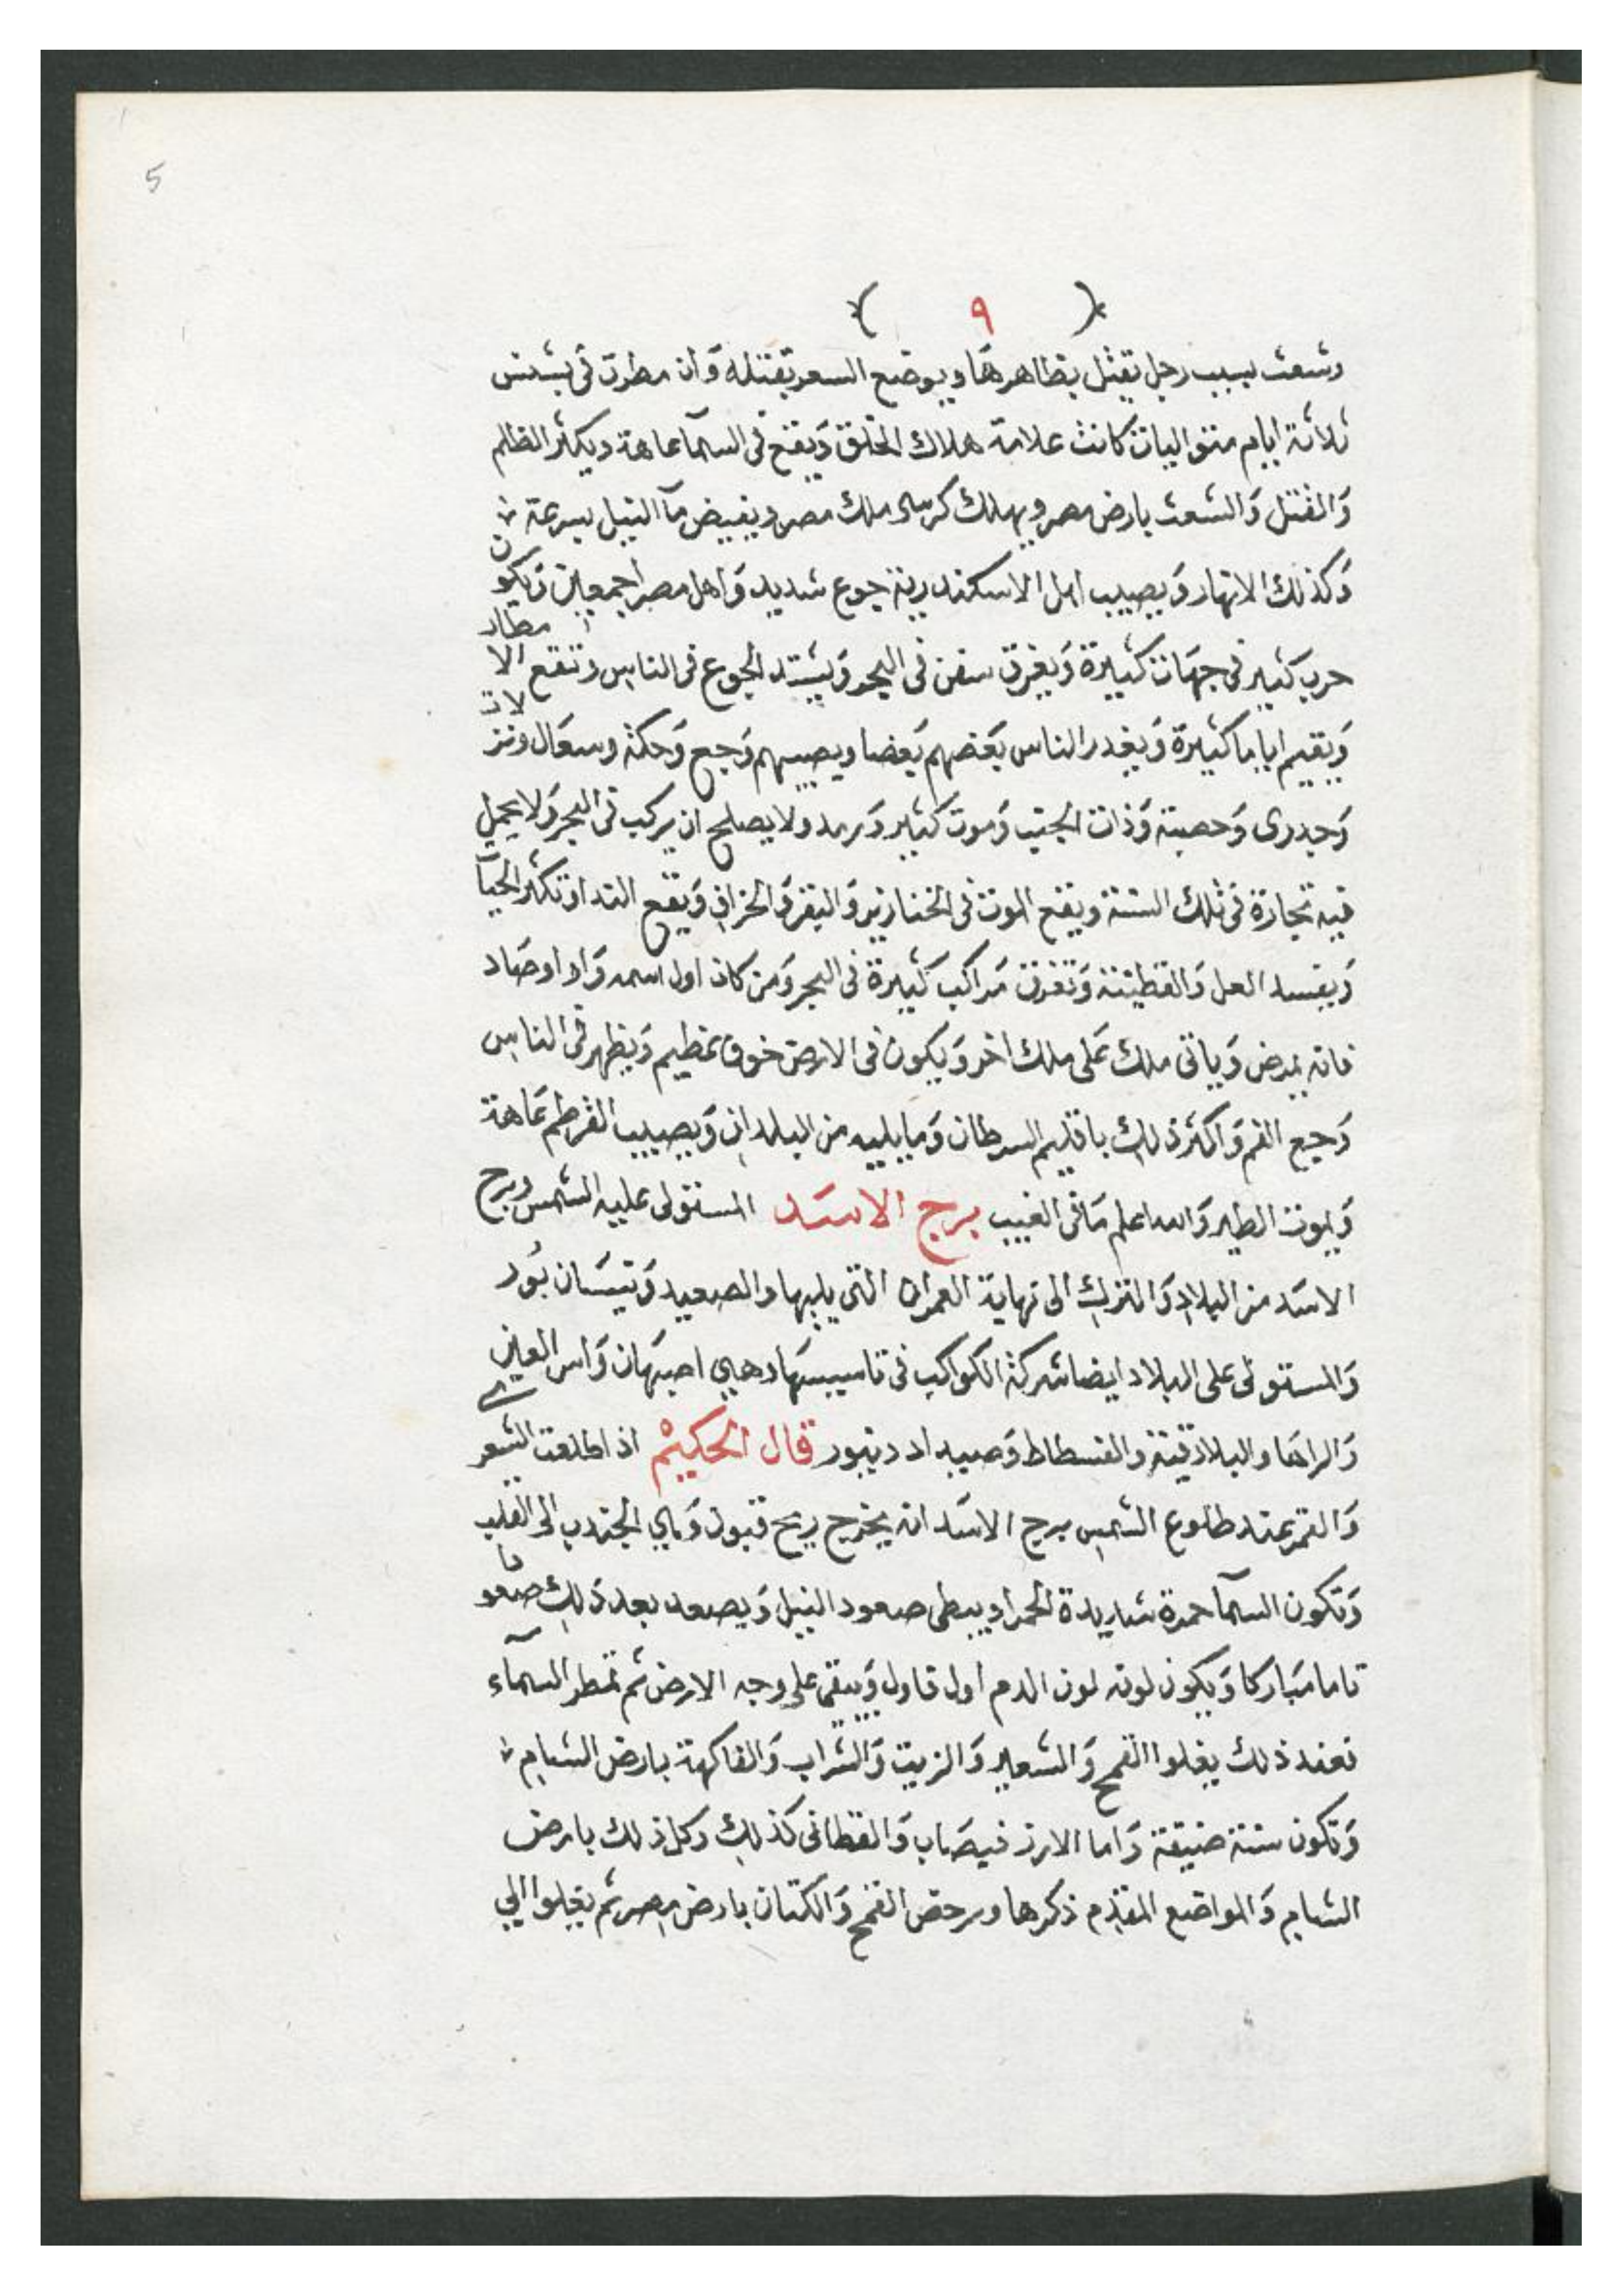 5
( ٩ )
وشعث بسبب رجل يقتل بظاهرها ويوضع السعر بقتله وَان مطرت فى بشنس
ثلاثة ايام متواليات كانت علامة هلاك الخلق وَيقع فى السمآ عاهة ويكثر الظلم
وَالقتل وَالشعث بارض مصر ويهلك كرسى ملك مصر ويفيض مآ النيل بسرعة
وَكذلك الانهار وَيصيب اهل الاسكندرية جوع شديد وَاهل مصر اجمعين وَيكون
حرب كثير فى جهات كثيرة وَيغرق سفن فى البحر وَيشتد الجوع فى الناس وتقع الامطار
وَيقيم اياما كثيرة وَيغدر الناس بعضهم بَعضا ويصيبهم وَجع وَحكة وسعَال ونزلات
وَجدرى وَحصبة وَذات الجنب وَموت كثير وَرمد ولا يصلح ان يركب فى البحر وَلا يحمل
فيه تجارة فى تلك السنة ويقع الموت فى الخنازير وَالبقر وَالخراف وَيقع الندا وتكثر الحيآ
وَيفسد العل وَالقطينة وَتغرق مَراكب كثيرة فى البحر وَمن كان اول اسمه وَاو او صَاد
فانه يمرض وَياتى ملك عَلى ملك اخر وَيكون فى الارض خوف عظيم وَيظهر فى الناس
وَجع الفم وَاكثر ذلك باقليم السرطان وَما يليه من البلدان وَيصيب القرطم عَاهة
وَيموت الطير وَالله اعلم مَا فى الغيب برج الاسَد المستولى عليه الشمس وبرج
الاسَد من البلاد وَالترك الى نهاية العمران التى يليها والصعيد وَنيسَان بُور
وَالمستولى على البلاد ايضا شركة الكواكب فى تاسيسهَا وهى اصبهَان وَراس العين
وَالراها والبلاذقية والفسطاط وَصيبه اد دينبور قال الحكيم اذا طلعت الشعرى
وَالقمر عند طلوع الشمس برج الاسَد انه يخرج ريح قبول وَياى الجندب الى القلب
وَتكون السمآ حمرة شديدة الحمرا ويبطى صعود النيل وَيصعد بعد ذَلك صعودا
تاما مَباركا وَيكون لونه لون الدم اول فاول وَيبقى على وجه الارض ثم تمطر السمآء
فعند ذلك يغلوا القمح وَالشعير وَالزيت وَالشراب وَالفاكهة بارض الشام
وَتكون سنة ضيقة وَاما الارز فيصَاب وَالقطانى كذلك وكل ذلك بارض
الشام وَالمواضع المقدم ذكرها ويرخص القمح وَالكتان بارض مصر ثم يغلوا الى